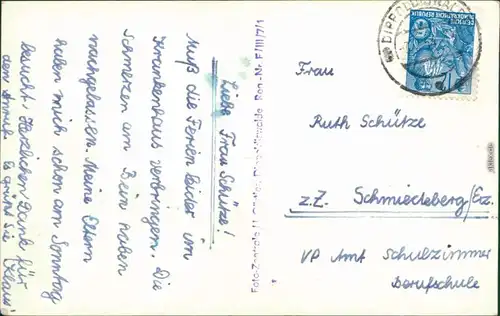 Liebe Frau Schütze!
Muß die Ferien leider im
Krankenhaus verbringen. Die
Schmerzen am Bein haben
nachgelassen. Meine Eltern
haben mich schon am Sonntag
besucht. Herzlichen Dank für
den Anruf. Es grüßt Sie Klaus
Foto-Zentrale
Reg.-Nr. F/III/7/1
DIPPOLDISWALDE
Frau
Ruth Schütze
z.Z. Schmiedeberg/Erz.
VP Amt Schulzimmer
Berufschule